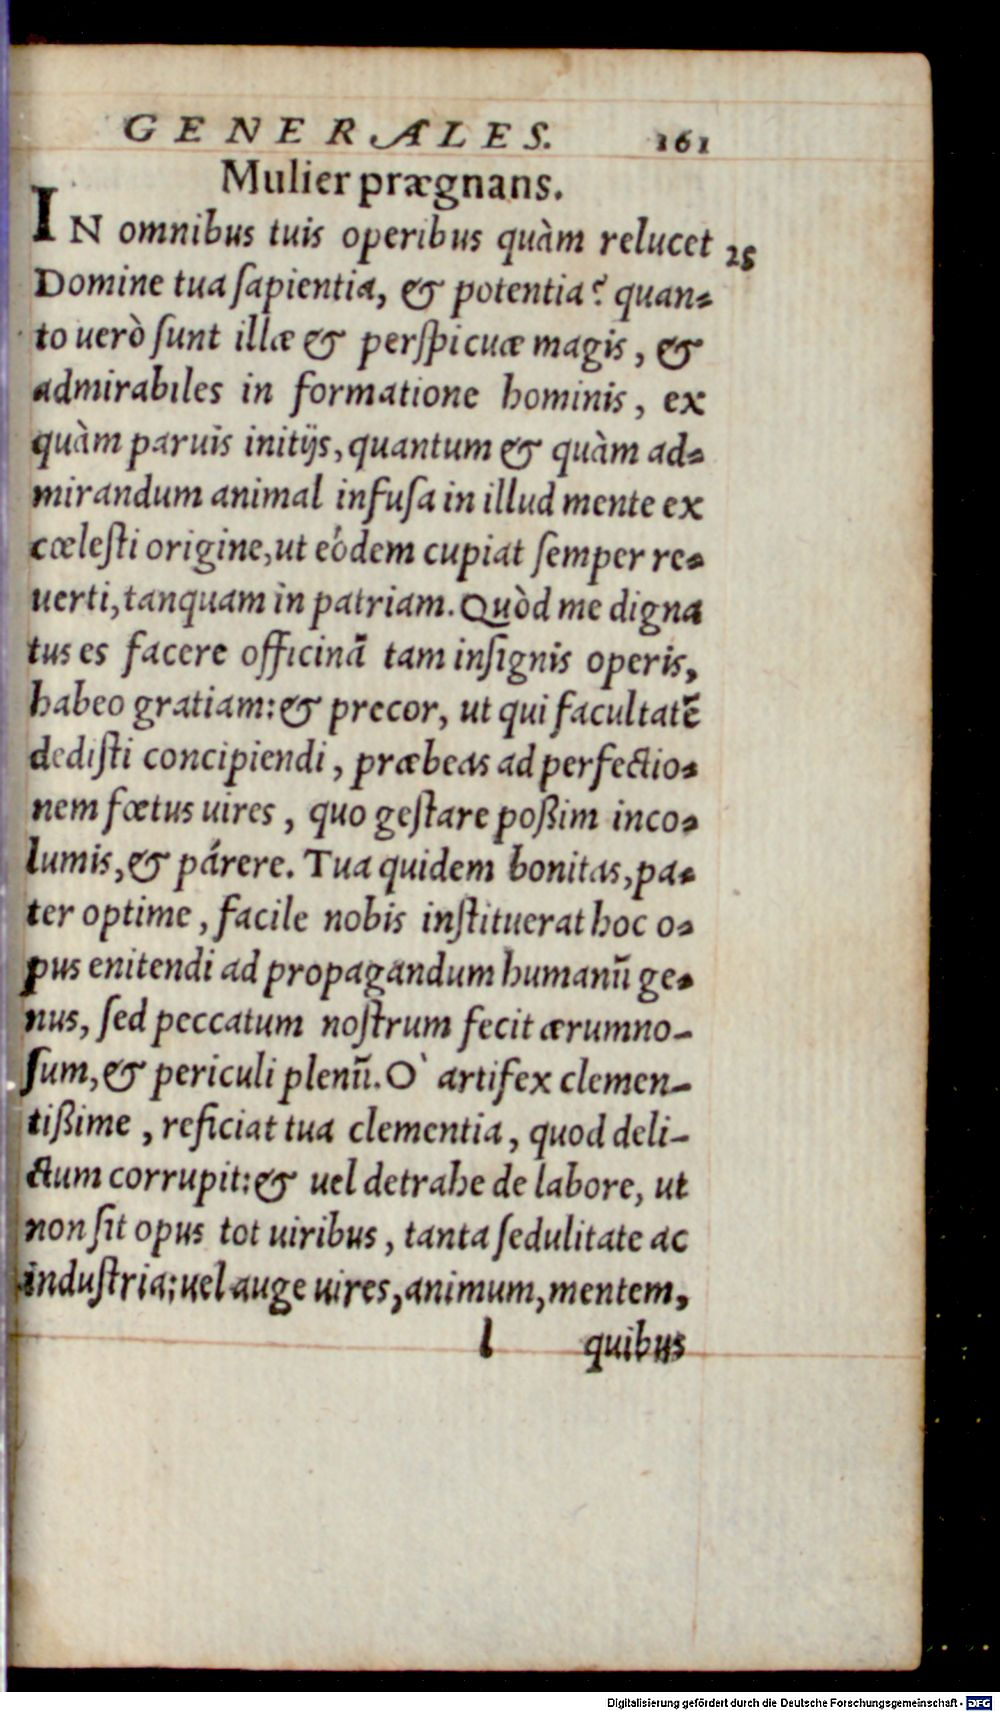 GENERALES. 161
Mulier prægnans.
IN omnibus tuis operibus quàm relucet 25
Domine tua ſapientia, & potentia? quan-
to uerò ſunt illæ & perſpicuæ magis, &
admirabiles in formatione hominis, ex
quàm paruis initijs, quantum & quàm ad-
mirandum animal infuſa in illud mente ex
cœleſti origine, ut eódem cupiat ſemper re-
uerti, tanquam in patriam. Quòd me digna
tus es facere officinā tam inſignis operis,
habeo gratiam: & precor, ut qui facultatē
dediſti concipiendi, præbeas ad perfectio-
nem fœtus uires, quo geſtare poßim inco-
lumis, & párere. Tua quidem bonitas, pa-
ter optime, facile nobis inſtituerat hoc o-
pus enitendi ad propagandum humanū ge-
nus, ſed peccatum noſtrum fecit ærumno-
ſum, & periculi plenū. O` artifex clemen-
tißime, reficiat tua clementia, quod deli-
ctum corrupit: & uel detrahe de labore, ut
non ſit opus tot uiribus, tanta ſedulitate ac
induſtria; uel auge uires, animum, mentem,
l quibus
Digitalisierung gefördert durch die Deutsche Forschungsgemeinschaft - DFG